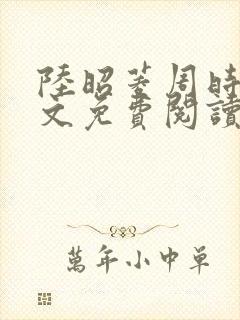 陸昭菱周時
文免費閱讀
萬年小中單